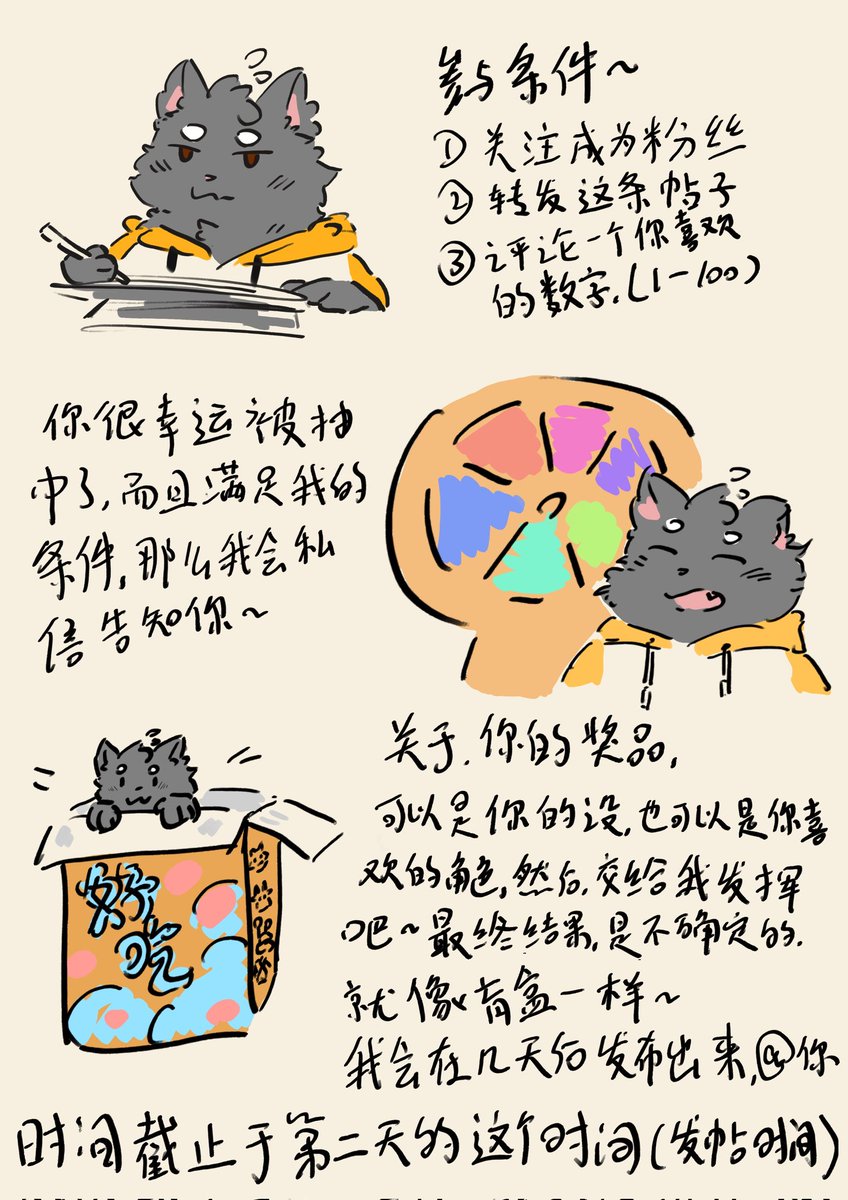 参与条件~
①关注成为粉丝
②转发这条帖子
③评论一个你喜欢
的数字.(1-100)
你很幸运被抽
中了,而且满足我的
条件,那么我会私
信告知你~
关于.你的奖品,
可以是你的设,也可以是你喜
欢的角色,然后,交给我发挥
吧~最终结果,是不确定的.
就像盲盒一样~
我会在几天后发布出来,@你
好吃
时间截止于第二天的这个时间(发帖时间)